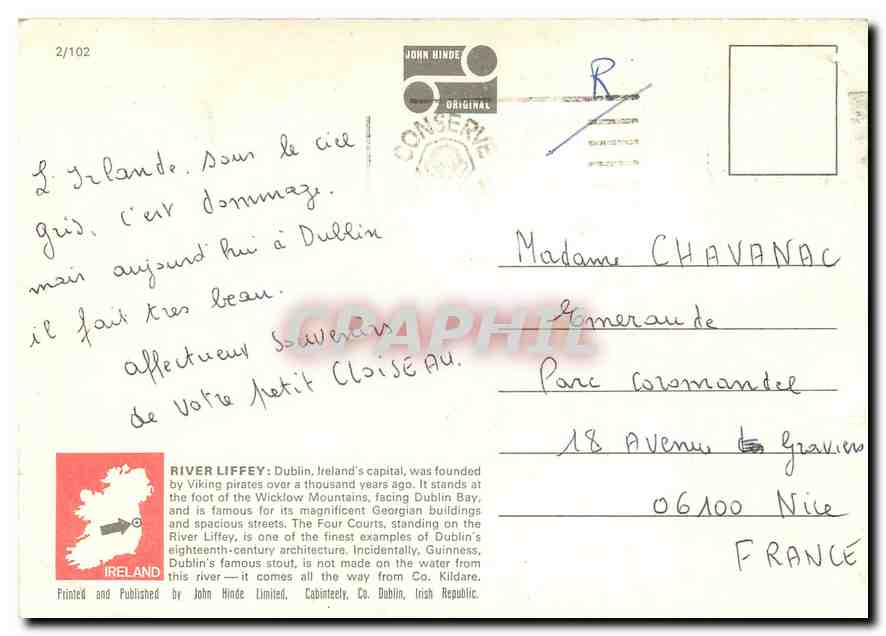 2/102
JOHN HINDE
ORIGINAL
R
CONSERVE
L'Irlande. sous le ciel
gris. c'est dommage.
mais aujourd'hui à Dublin
il fait tres beau.
affectueux souvenirs
de votre petit CLOISEAU.
Madame CHAVANAC
Emeraude
Parc Coromandel
18 Avenue Graviers
06100 Nice
FRANCE
CPAPHIL
RIVER LIFFEY: Dublin, Ireland's capital, was founded
by Viking pirates over a thousand years ago. It stands at
the foot of the Wicklow Mountains, facing Dublin Bay,
and is famous for its magnificent Georgian buildings
and spacious streets. The Four Courts, standing on the
River Liffey, is one of the finest examples of Dublin's
eighteenth-century architecture. Incidentally, Guinness,
Dublin's famous stout, is not made on the water from
this river — it comes all the way from Co. Kildare.
IRELAND
Printed and Published by John Hinde Limited, Cabinteely, Co. Dublin, Irish Republic.